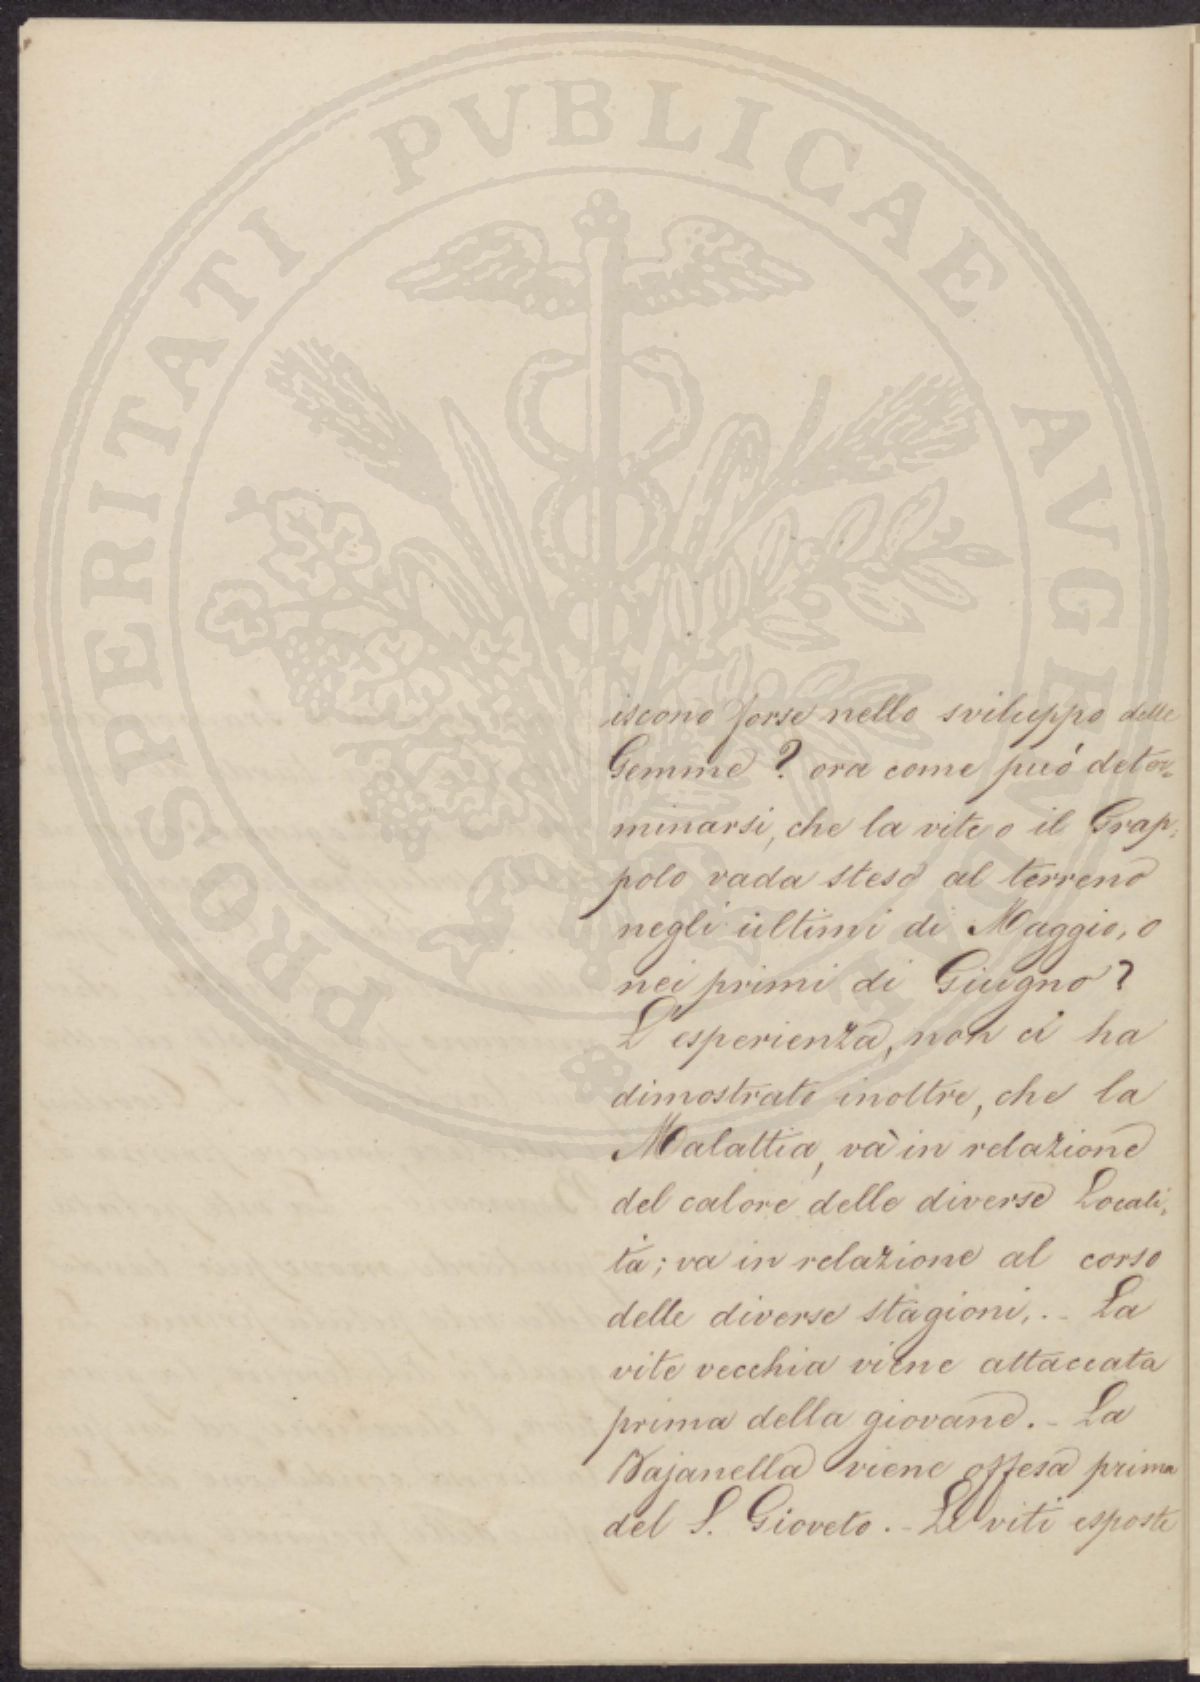 PROSPERITATI PVBLICAE AVGENDAE
iscono forse nello sviluppo delle
Gemme? ora come può deter=
minarsi, che la vite o il Grap=
polo vada steso al terreno
negli ultimi di Maggio, o
nei primi di Giugno?
L'esperienza, non ci ha
dimostrato inoltre, che la
Malattia, và in relazione
del calore delle diverse Locali=
tà; va in relazione al corso
delle diverse stagioni,.- La
vite vecchia viene attaccata
prima della giovane.- La
Bajanella viene offesa prima
del S. Gioveto.- Le viti esposte